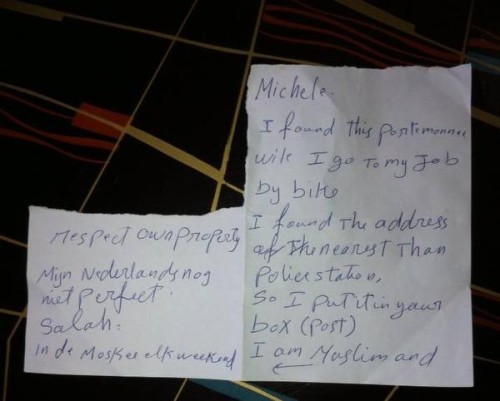 Michele.
I found this portemonnee
wile I go to my Job
by bike
I found the address
of the nearest Than
Police station,
So I put it in your
box (post)
I am Muslim and
respect own property
Mijn Nederlands nog
niet perfect.
Salah:
in de Moskee elk weekend